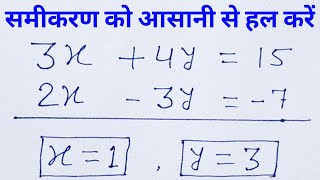 समीकरण को आसानी से हल करें
3x + 4y = 15
2x - 3y = -7
x = 1 , y = 3